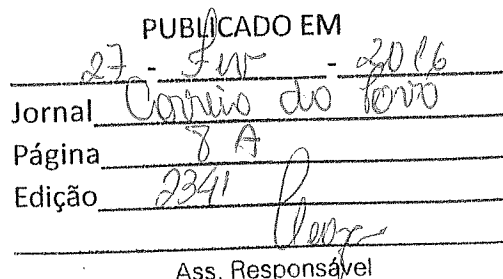 PUBLICADO EM
27 - Fev - 2016
Jornal Correio do Povo
Página 8 A
Edição 2341
Ass. Responsável